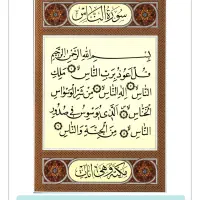 سُورَةُ النَّاسِ
بِسْمِ اللَّهِ الرَّحْمَٰنِ الرَّحِيمِ
قُلْ أَعُوذُ بِرَبِّ النَّاسِ ۝ مَلِكِ
النَّاسِ ۝ إِلَٰهِ النَّاسِ ۝ مِن شَرِّ الْوَسْوَاسِ
الْخَنَّاسِ ۝ الَّذِي يُوَسْوِسُ فِي صُدُورِ
النَّاسِ ۝ مِنَ الْجِنَّةِ وَالنَّاسِ ۝